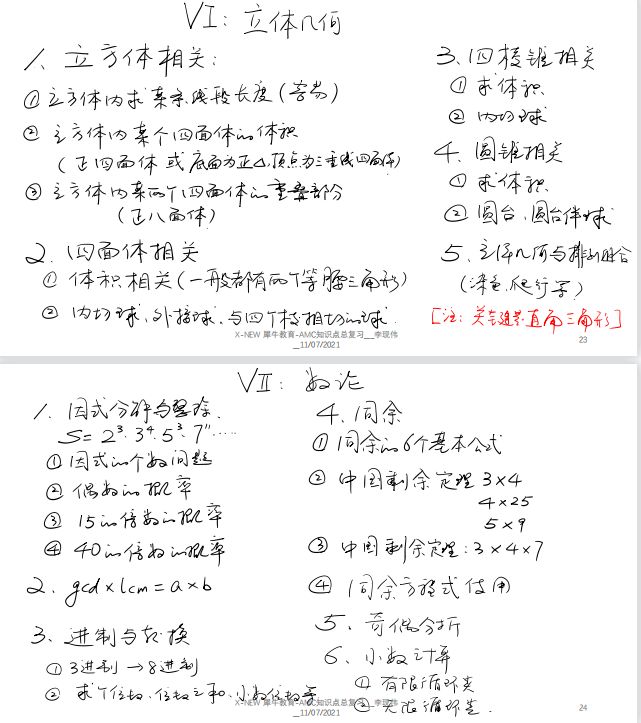 VI: 立体几何
1、立方体相关:
① 立方体内求某条线段长度(容易)
② 立方体内某个四面体的体积
(正四面体 或 底面为正△,顶点为三垂线四面体)
③ 立方体内某两个四面体的重叠部分
(正八面体)
2、四面体相关
① 体积相关(一般都有两个等腰三角形)
② 内切球、外接球、与四个棱相切的球.
3、四棱锥相关
① 求体积
② 内切球
4、圆锥相关
① 求体积.
② 圆台、圆台伴球
5、立体几何与排列组合
(染色、爬行等)
[注: 关键建立直角三角形]
X-NEW 犀牛教育-AMC知识点总复习__李现伟
__11/07/2021
23
VII: 数论
1、因式分解与整除.
S = 2³·3⁴·5³·7¹¹……
① 因式的个数问题
② 偶数的概率
③ 15的倍数的概率
④ 40的倍数的概率
2、gcd × lcm = a × b
3、进制与转换
① 3进制 → 8进制
② 求个位数、位数之和、小数位数等
4、同余
① 同余的6个基本公式
② 中国剩余定理 3×4
4×25
5×9
③ 中国剩余定理: 3×4×7
④ 同余方程式使用
5、奇偶分析
6、小数计算
① 有限循环类
② 无限循环类.
X-NEW 犀牛教育-AMC知识点总复习__李现伟
__11/07/2021
24